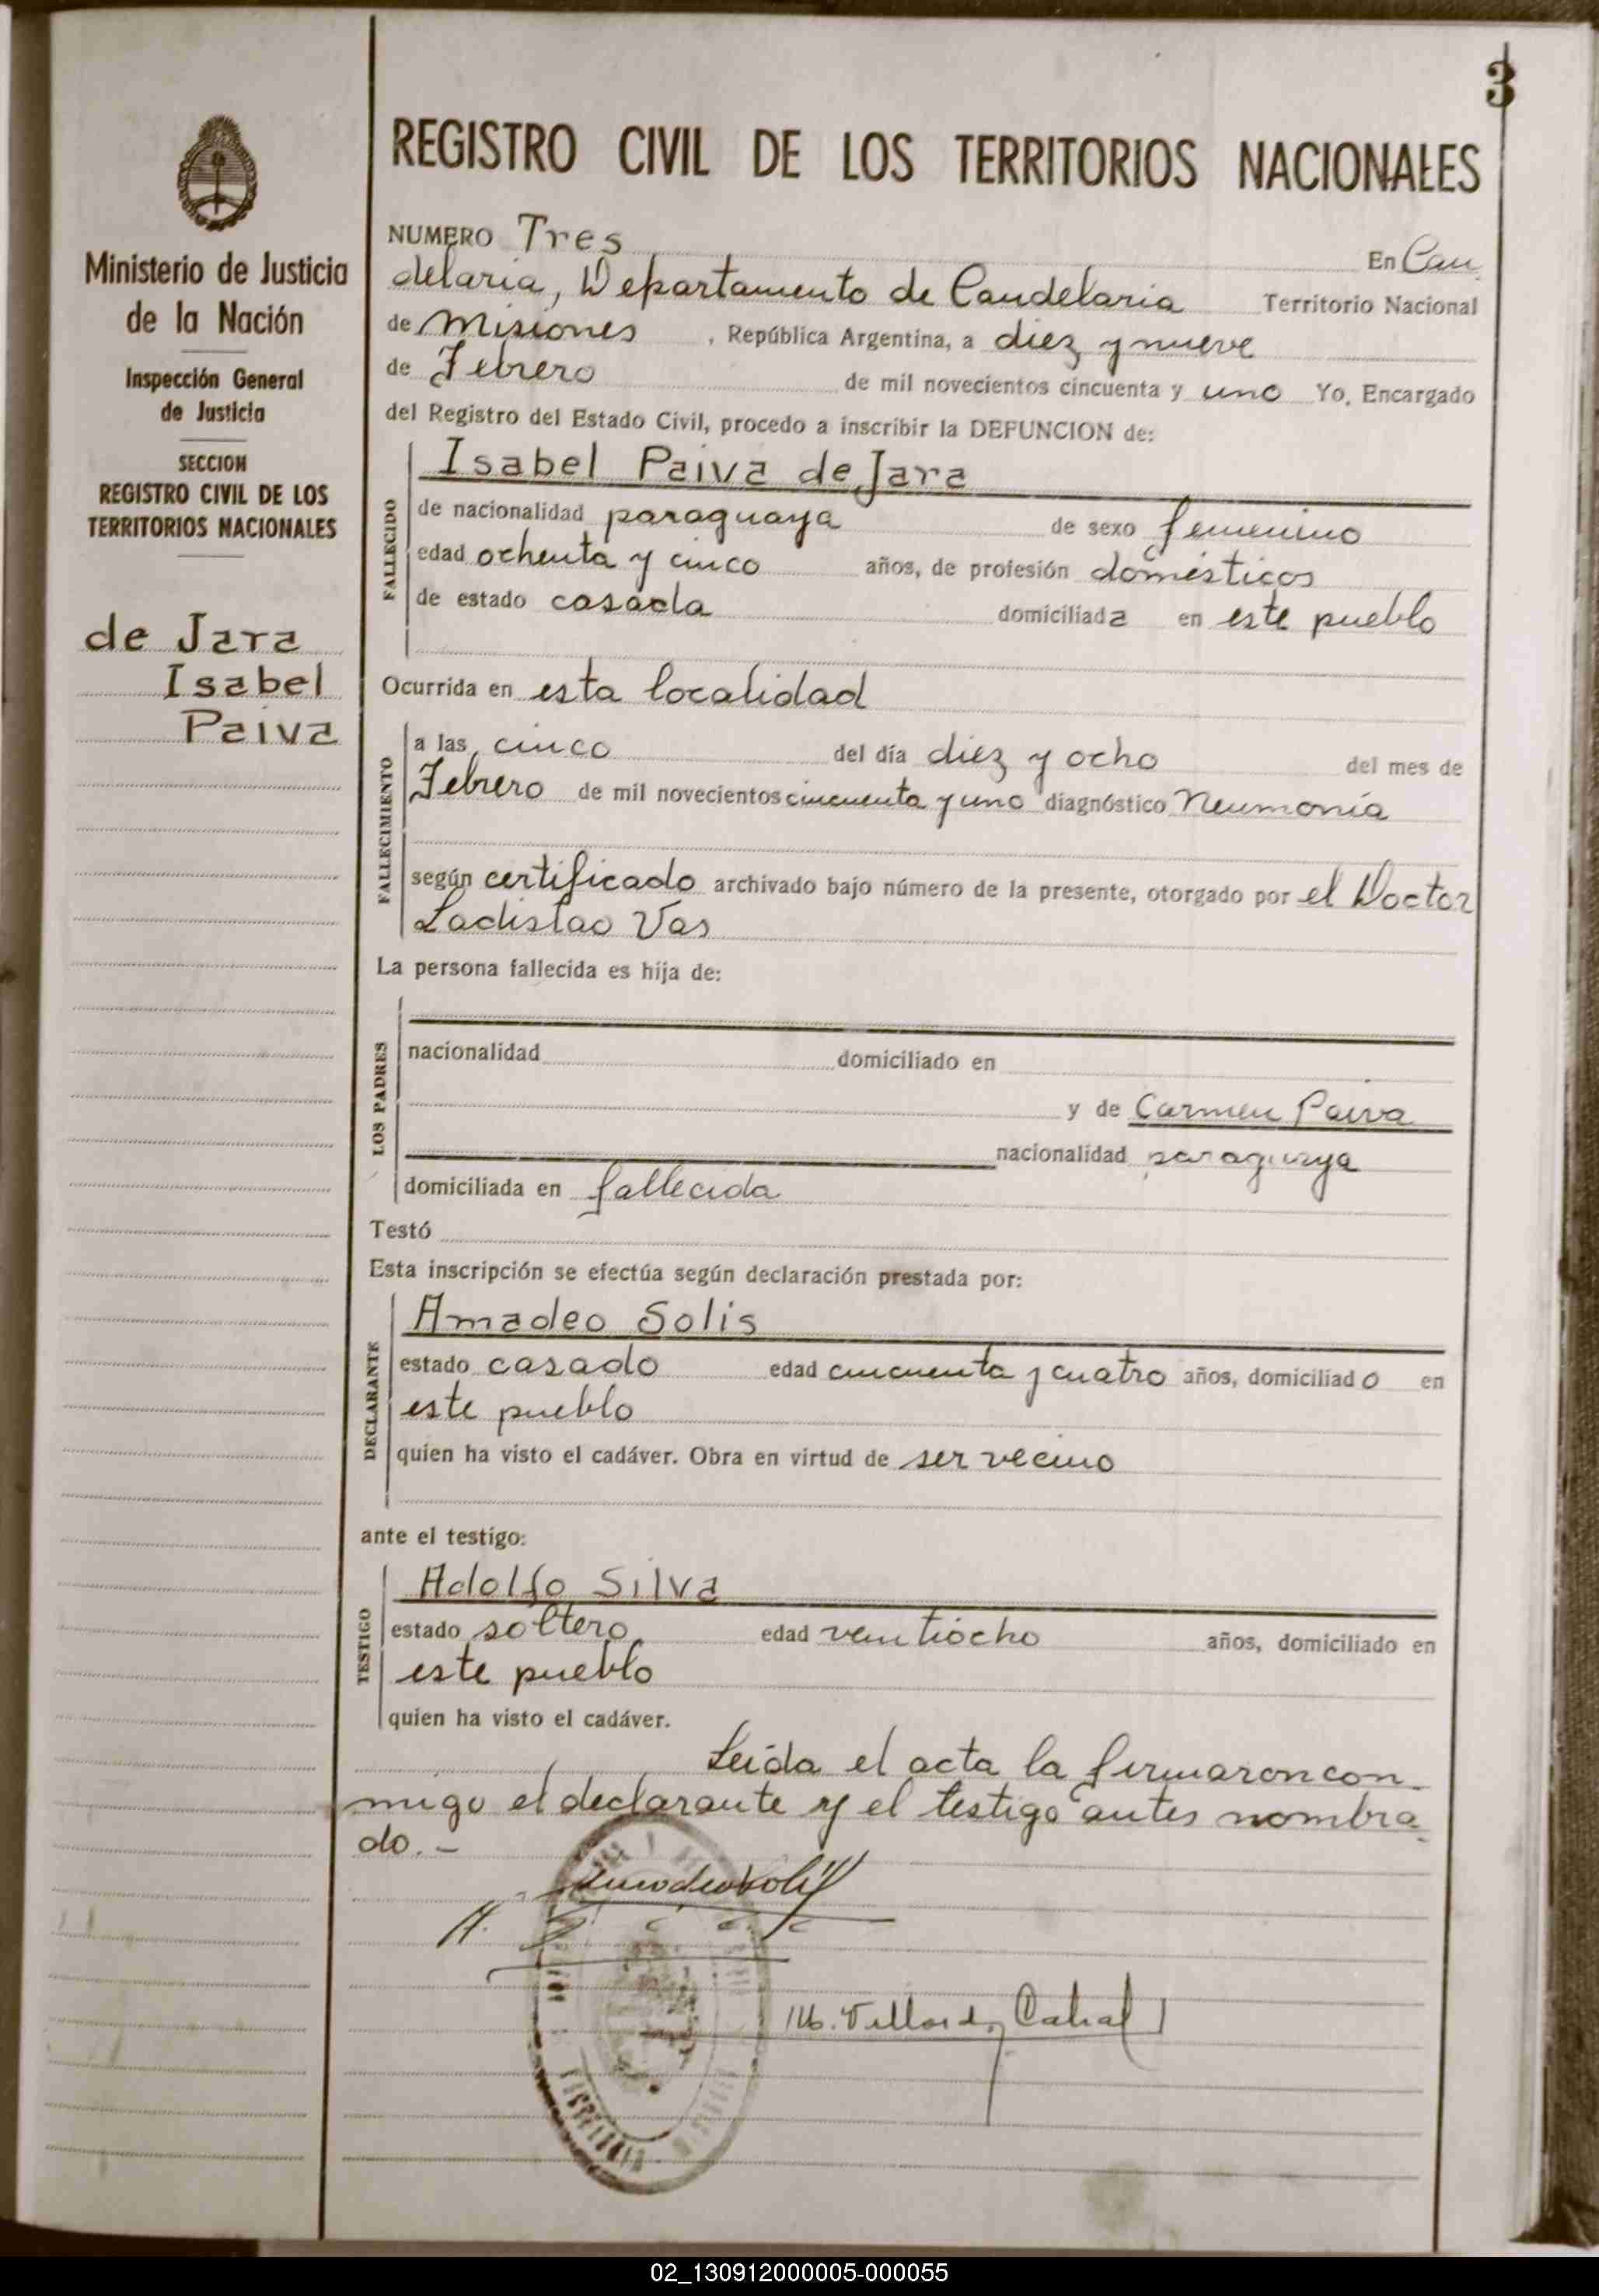 3
Ministerio de Justicia
de la Nación
Inspección General
de Justicia
SECCION
REGISTRO CIVIL DE LOS
TERRITORIOS NACIONALES
de Jara
Isabel
Paiva
REGISTRO CIVIL DE LOS TERRITORIOS NACIONALES
NUMERO Tres En Can
delaria, Departamento de Candelaria Territorio Nacional
de Misiones , República Argentina, a diez y nueve
de Febrero de mil novecientos cincuenta y uno Yo, Encargado
del Registro del Estado Civil, procedo a inscribir la DEFUNCION de:
FALLECIDO
Isabel Paiva de Jara
de nacionalidad paraguaya de sexo femenino
edad ochenta y cinco años, de profesión domésticos
de estado casada domiciliada en este pueblo
Ocurrida en esta localidad
FALLECIMIENTO
a las cinco del día diez y ocho del mes de
Febrero de mil novecientos cincuenta y uno diagnóstico Neumonía
según certificado archivado bajo número de la presente, otorgado por el Doctor
Ladislao Vas
La persona fallecida es hija de:
LOS PADRES
nacionalidad domiciliado en
y de Carmen Paiva
nacionalidad paraguaya
domiciliada en fallecida
Testó
Esta inscripción se efectúa según declaración prestada por:
DECLARANTE
Amadeo Solis
estado casado edad cincuenta y cuatro años, domiciliado en
este pueblo
quien ha visto el cadáver. Obra en virtud de ser vecino
ante el testigo:
TESTIGO
Adolfo Silva
estado soltero edad ventiocho años, domiciliado en
este pueblo
quien ha visto el cadáver.
Leída el acta la firmaron con
migo el declarante y el testigo antes nombra
do.-
Cabral
02_130912000005-000055